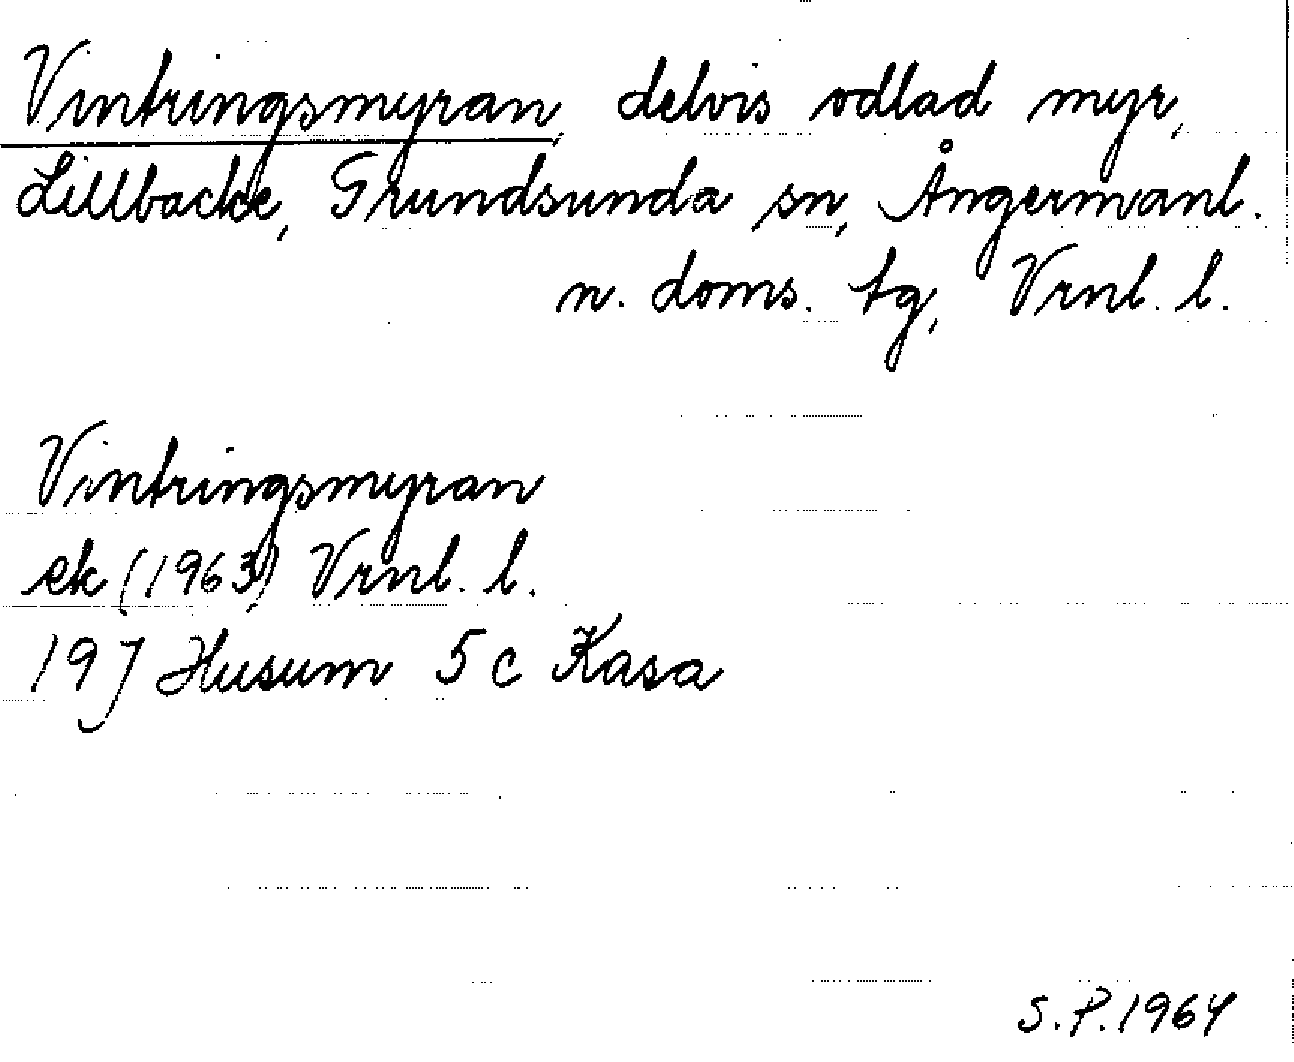 Vintringsmyran, delvis odlad myr,
Lillbacke, Grundsunda sn, Ångermanl.
n. doms. tg, Vrnl. l.
Vintringsmyran
ek (1963) Vrnl. l.
19J Husum 5 c Kasa
S.P.1964